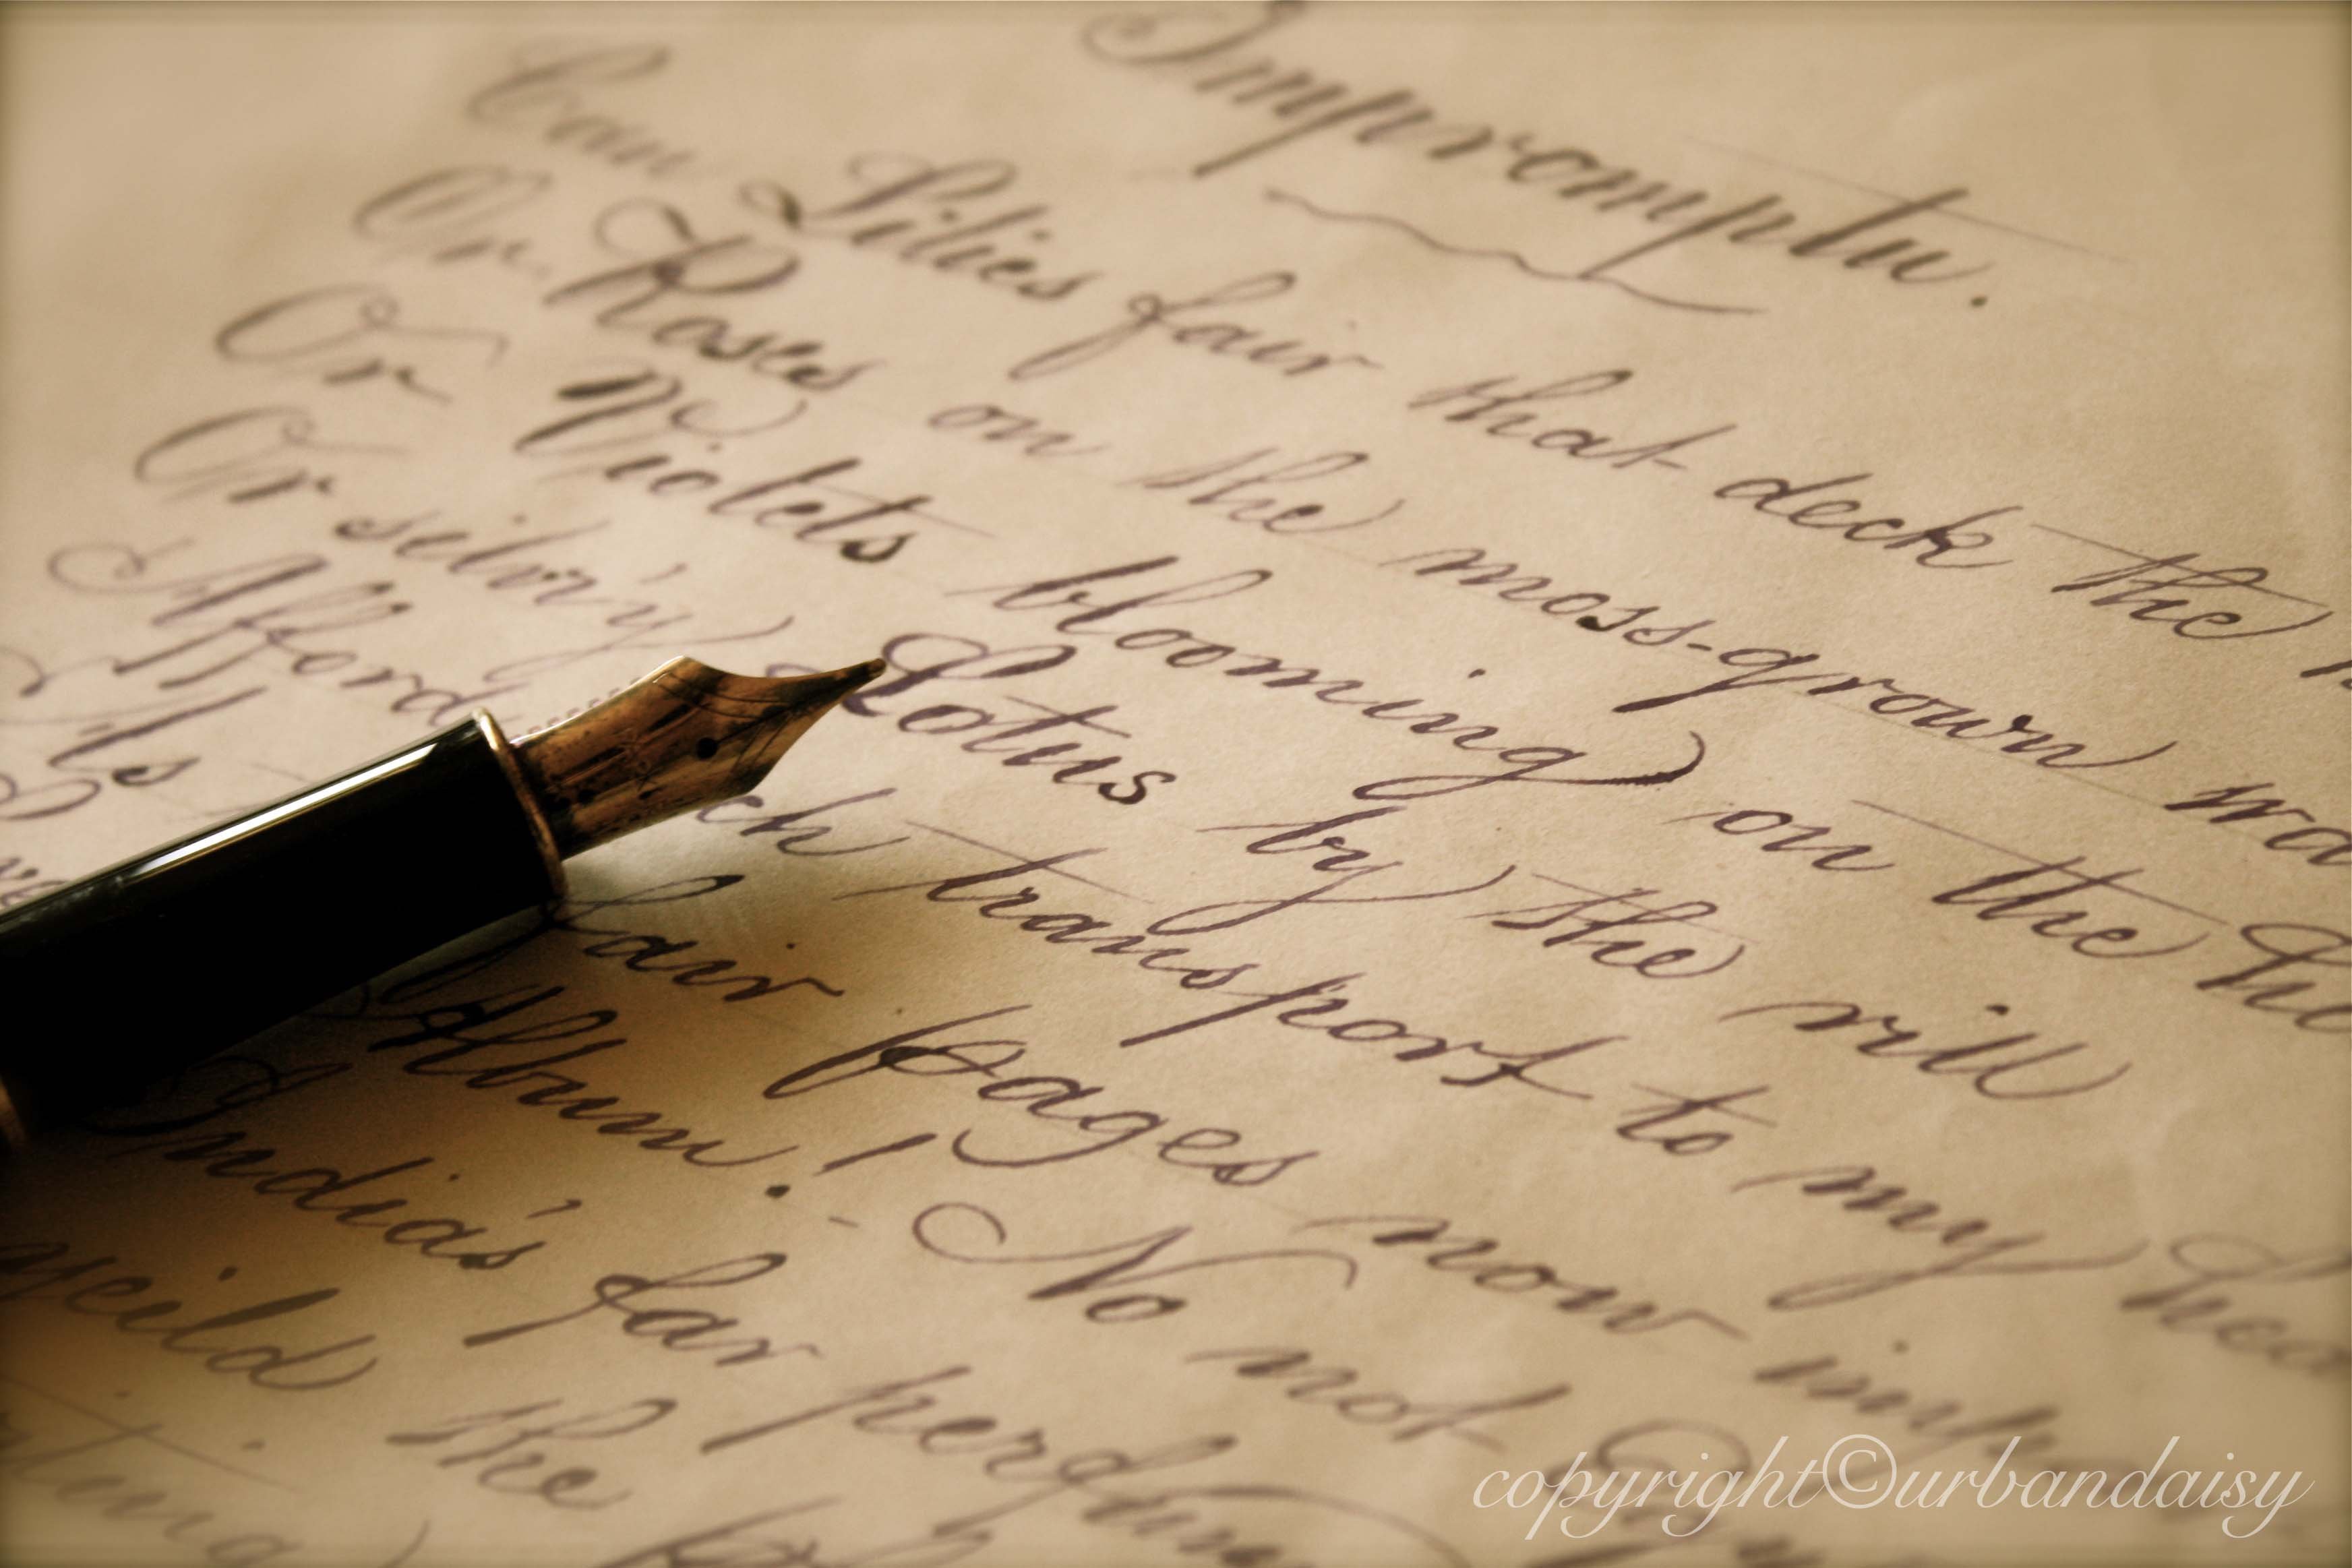 Impromptu.
Can Lilies fair that deck the
Or Roses on the moss-grown
Or Violets blooming on the
Or silv'ry Lotus by the rill
Afford transport to my
As fair pages now
Album! - No not
India's far
yeild the
copyright©urbandaisy